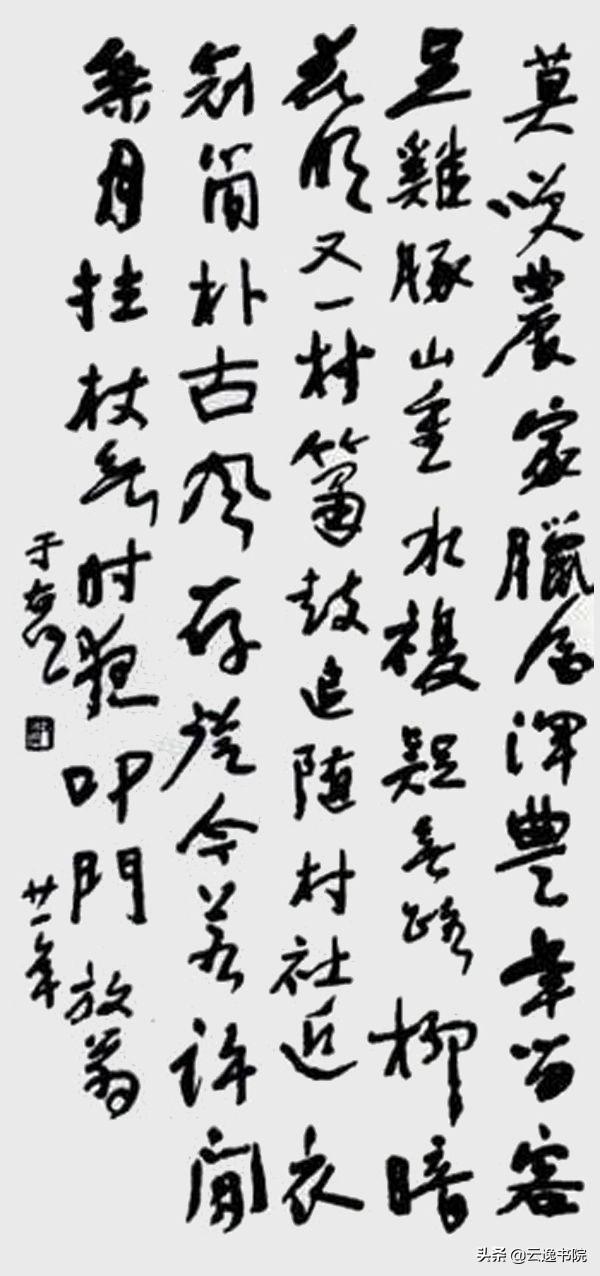 莫咲農家臘酒渾豐年留客
足雞豚山重水複疑無路柳暗
花明又一村簫鼓追随村社近衣
冠简朴古風存從今若許閒
乘月拄杖無时夜叩門放翁
廿一年
于右任
头条 @云逸书院